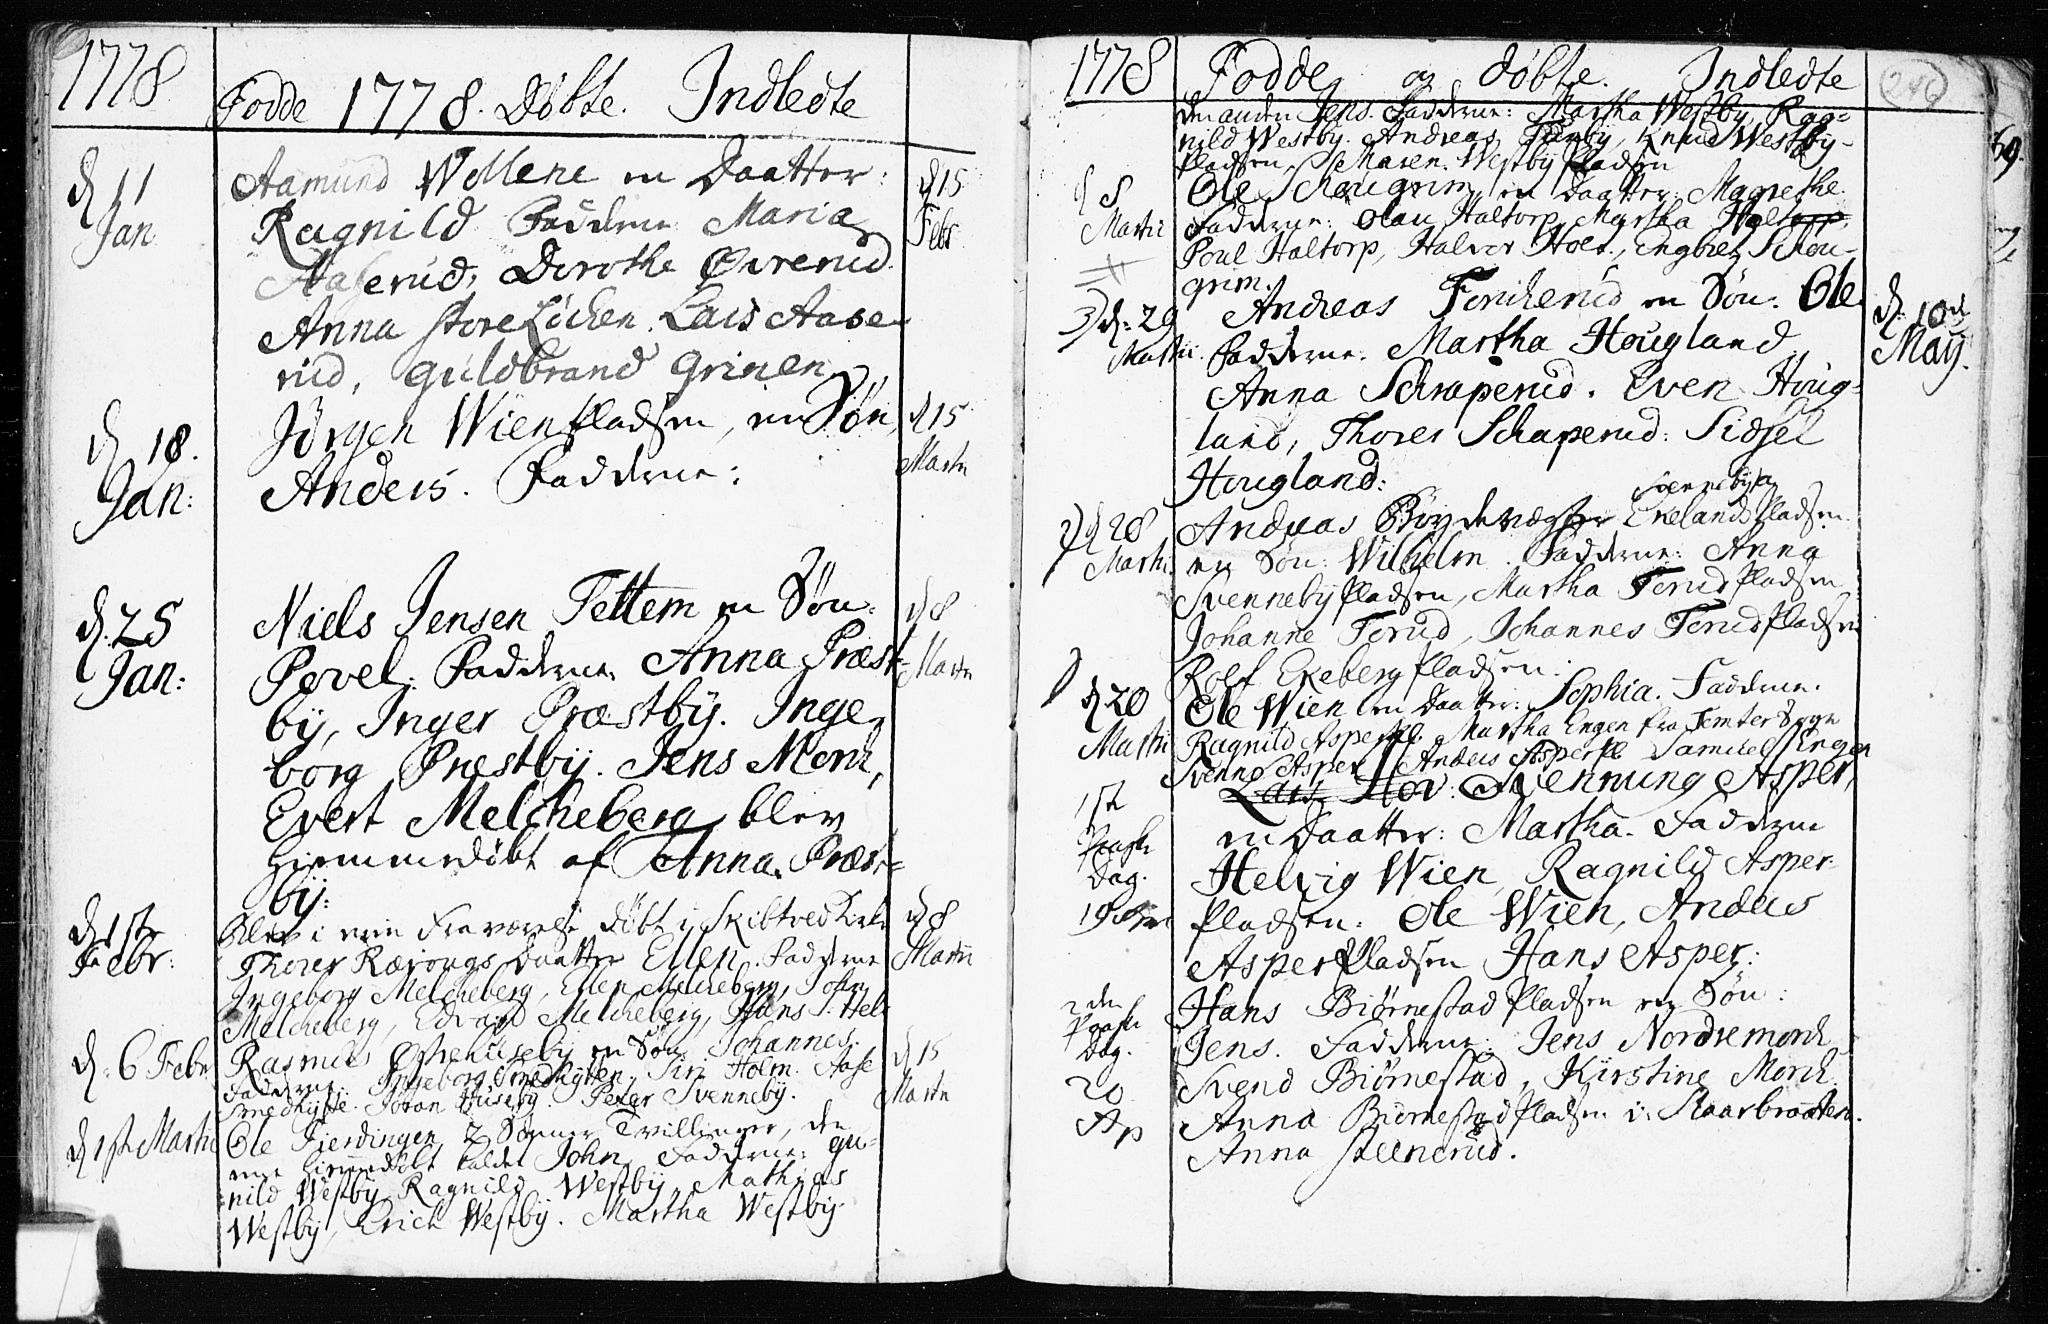 1778
Fodde 1778. Døbte. Indledte
d 11 Jan
Aamund Wollene en Daatter:
d 15 Febr
Ragnild Fadderne Maria
Aaserud, Dorothe Øvrerud.
Anna store Løchen. Lars Aase-
rud, Guldbrand Grinen.
d 18. Jan:
Jørgen Wien Pladsen, en Søn,
d 15 Martii
Anders. Fadderne:
d. 25 Jan:
Niels Jensen Tettem en Søn.
d 8 Martii
Povel. Fadderne. Anna Præst-
by, Inger Præstby. Inge-
borg Præstby. Jens Monk,
Evert Melcheberg blev
hiemmedøbt af Anna Præst-
by:
d 1ste Febr:
Blev i min Fraværelse døbt i Skibtved Kirke
d 8 Martii
Thorer Datter Ellen. Fadderne
Ingeborg Melcheberg, Ellen Melcheberg, John
Melcheberg, Edvard Melcheberg, Hans
d. 6 Febr
Rasmus en Søn Johannes.
d 15 Martii
Fadderne. Ingeborg Smedhytten. Siri Holm. Aase
Smedhytte. Joran Huseby. Peter Svenneby.
d 1ste Martii
Ole Fierdingen 2 Sønner Tvillinger, den
ene hiemmedøbt kaldet John, Fadderne: Gu-
nild Westby, Ragnild Westby, Mathias
Westby, Erich Westby. Martha Westby.
1778
Fodde og døbte. Indledte
246
den anden Jens. Fadderne: Martha Westby, Rag-
nild Westby. Andreas Knud Westby-
Pladsen, Maren Westby Pladsen
d 8 Martii
Ole Schougrim en Daatter: Magrethe.
Fadderne: Olau Haltorp, Martha Haltorp,
Poul Haltorp, Halvor Holt, Engbret Schou-
grim.
3) d. 29 Martii.
Andreas en Søn. Ole
d. 10de May.
Fadderne. Martha Hougland,
Anna Schraperud. Even Houg-
land, Thorer Schaperud. Sidsel
Hougland:
Svennebye
2) d 28 Martii.
Andreas Ekelands Pladsen
en Søn: Wilhelm. Fadderne: Anna
Svenneby Pladsen, Martha Torud Pladsen
Johanne Torud, Johannes Torud Pladsen
Rolf Ekeberg Pladsen.
1) d 20 Martii
Ole Wien en Daatter: Sophia. Fadderne.
Ragnild Asper Pl. Martha Engen fra Tomter Sogn
Svenne Asper Anders Asper Pl Samuel Engen
1ste Paaske Dag. 19
Lars Hov: Svennung Asper,
en Daatter: Martha. Fadderne
Helvig Wien, Ragnild Asper-
Pladsen. Ole Wien, Anders
Asper Pladsen Hans Asper.
2den Paaske Dag. 20 Ap
Hans Biørnestad Pladsen en Søn:
Jens. Fadderne: Jens Nordremonk
Svend Biørnestad, Kirstine Monk.
Anna Biørnestad Pladsen i Skaarbraaten.
Anna Steenerud.